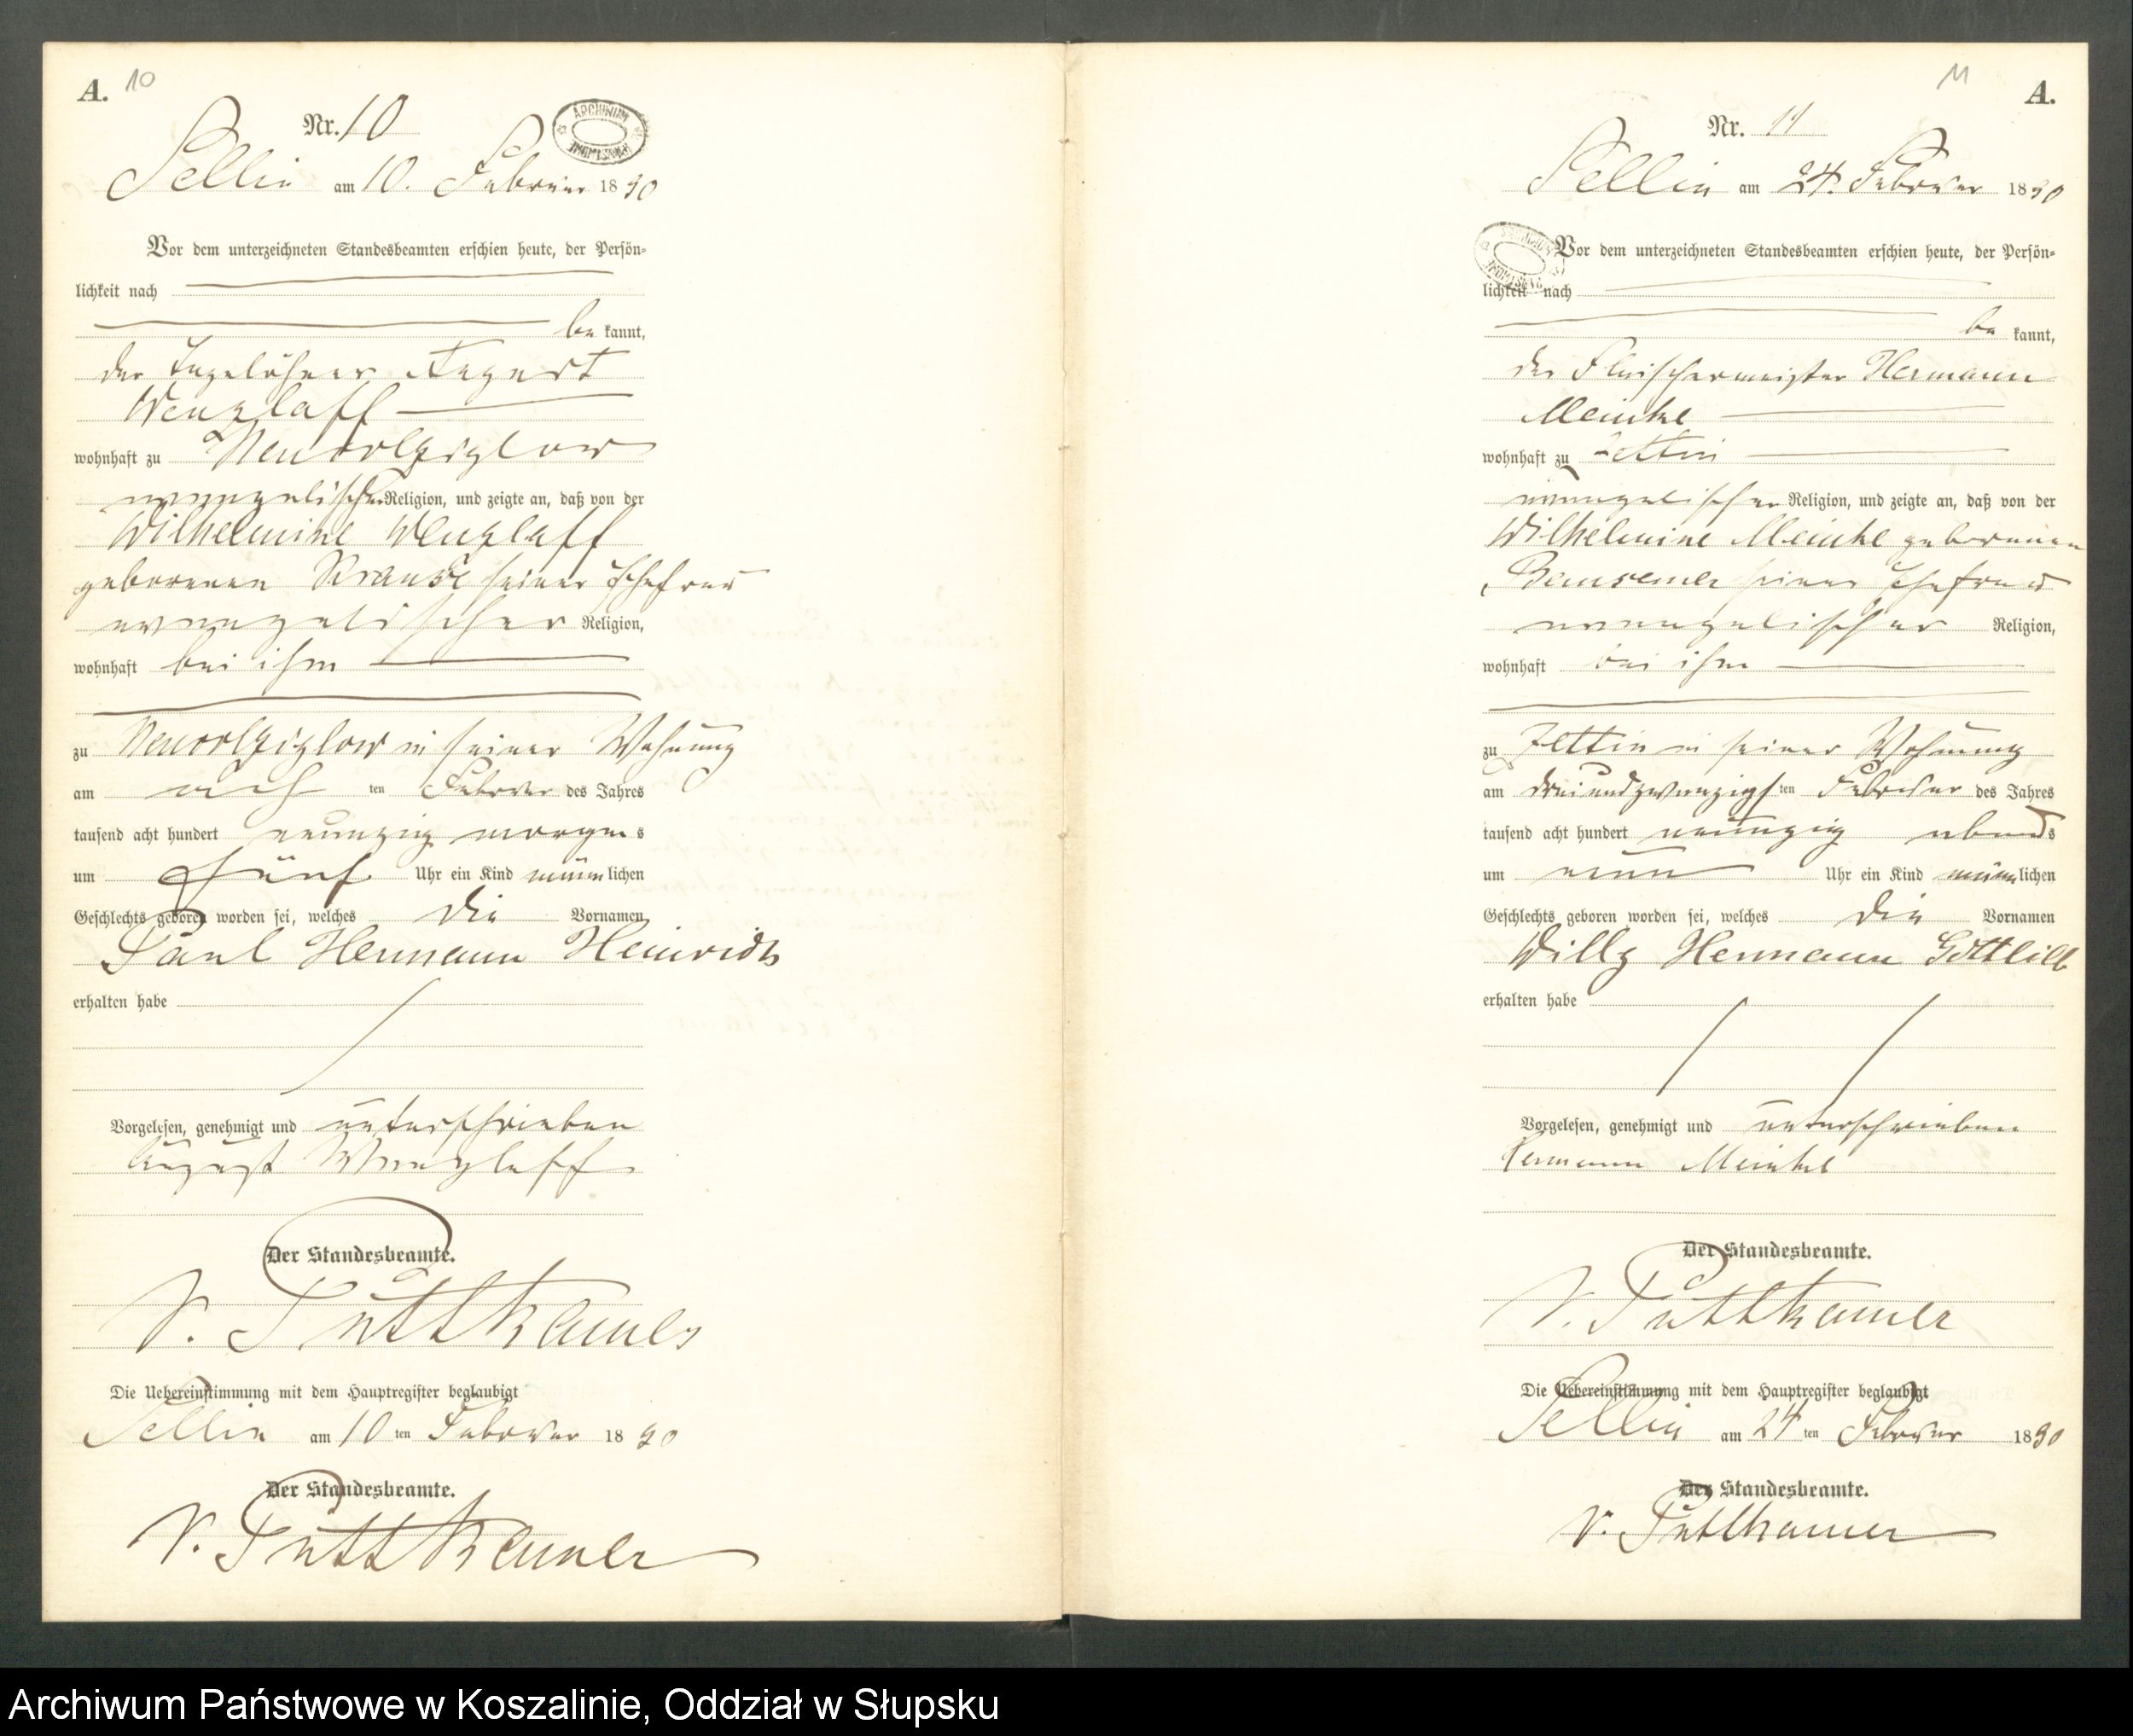 A. 10
Nr. 10
Sellin am 10. Februar 1890
Vor dem unterzeichneten Standesbeamten erschien heute, der Persön-
lichkeit nach
be kannt,
der Tagelöhner August
Wenzlaff
wohnhaft zu
evangelischer Religion, und zeigte an, daß von der
Wilhelmine Wenzlaff
geborenen Krause seiner Ehefrau
evangelischer Religion,
wohnhaft bei ihm
zu in seiner Wohnung
am ten Februar des Jahres
tausend acht hundert neunzig morgens
um fünf Uhr ein Kind männlichen
Geschlechts geboren worden sei, welches die Vornamen
Paul Hermann Heinrich
erhalten habe
Vorgelesen, genehmigt und unterschrieben
August Wenzlaff
Der Standesbeamte.
v. Puttkamer
Die Uebereinstimmung mit dem Hauptregister beglaubigt
Sellin am 10 ten Februar 1890
Der Standesbeamte.
v. Puttkamer
11 A.
Nr. 11
Sellin am 24. Februar 1890
Vor dem unterzeichneten Standesbeamten erschien heute, der Persön-
lichkeit nach
be kannt,
der Fleischermeister Hermann
Meinke
wohnhaft zu Zettin
evangelischer Religion, und zeigte an, daß von der
Wilhelmine Meinke geborenen
seiner Ehefrau
evangelischer Religion,
wohnhaft bei ihm
zu Zettin in seiner Wohnung
am dreiundzwanzigsten Februar des Jahres
tausend acht hundert neunzig abends
um neun Uhr ein Kind männlichen
Geschlechts geboren worden sei, welches die Vornamen
Willy Hermann Gottlieb
erhalten habe
Vorgelesen, genehmigt und unterschrieben
Hermann Meinke
Der Standesbeamte.
v. Puttkamer
Die Uebereinstimmung mit dem Hauptregister beglaubigt
Sellin am 24 ten Februar 1890
Der Standesbeamte.
v. Puttkamer
Archiwum Państwowe w Koszalinie, Oddział w Słupsku